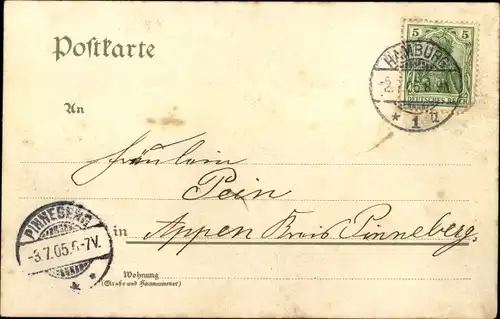 Postkarte
5 5
DEUTSCHES REICH
HAMBURG
* 1 u
An
Fräulein
Pein
in Appen Kreis Pinneberg.
PINNEBERG
-3.7.05.6-7V.
* *
Wohnung
(Straße und Hausnummer)